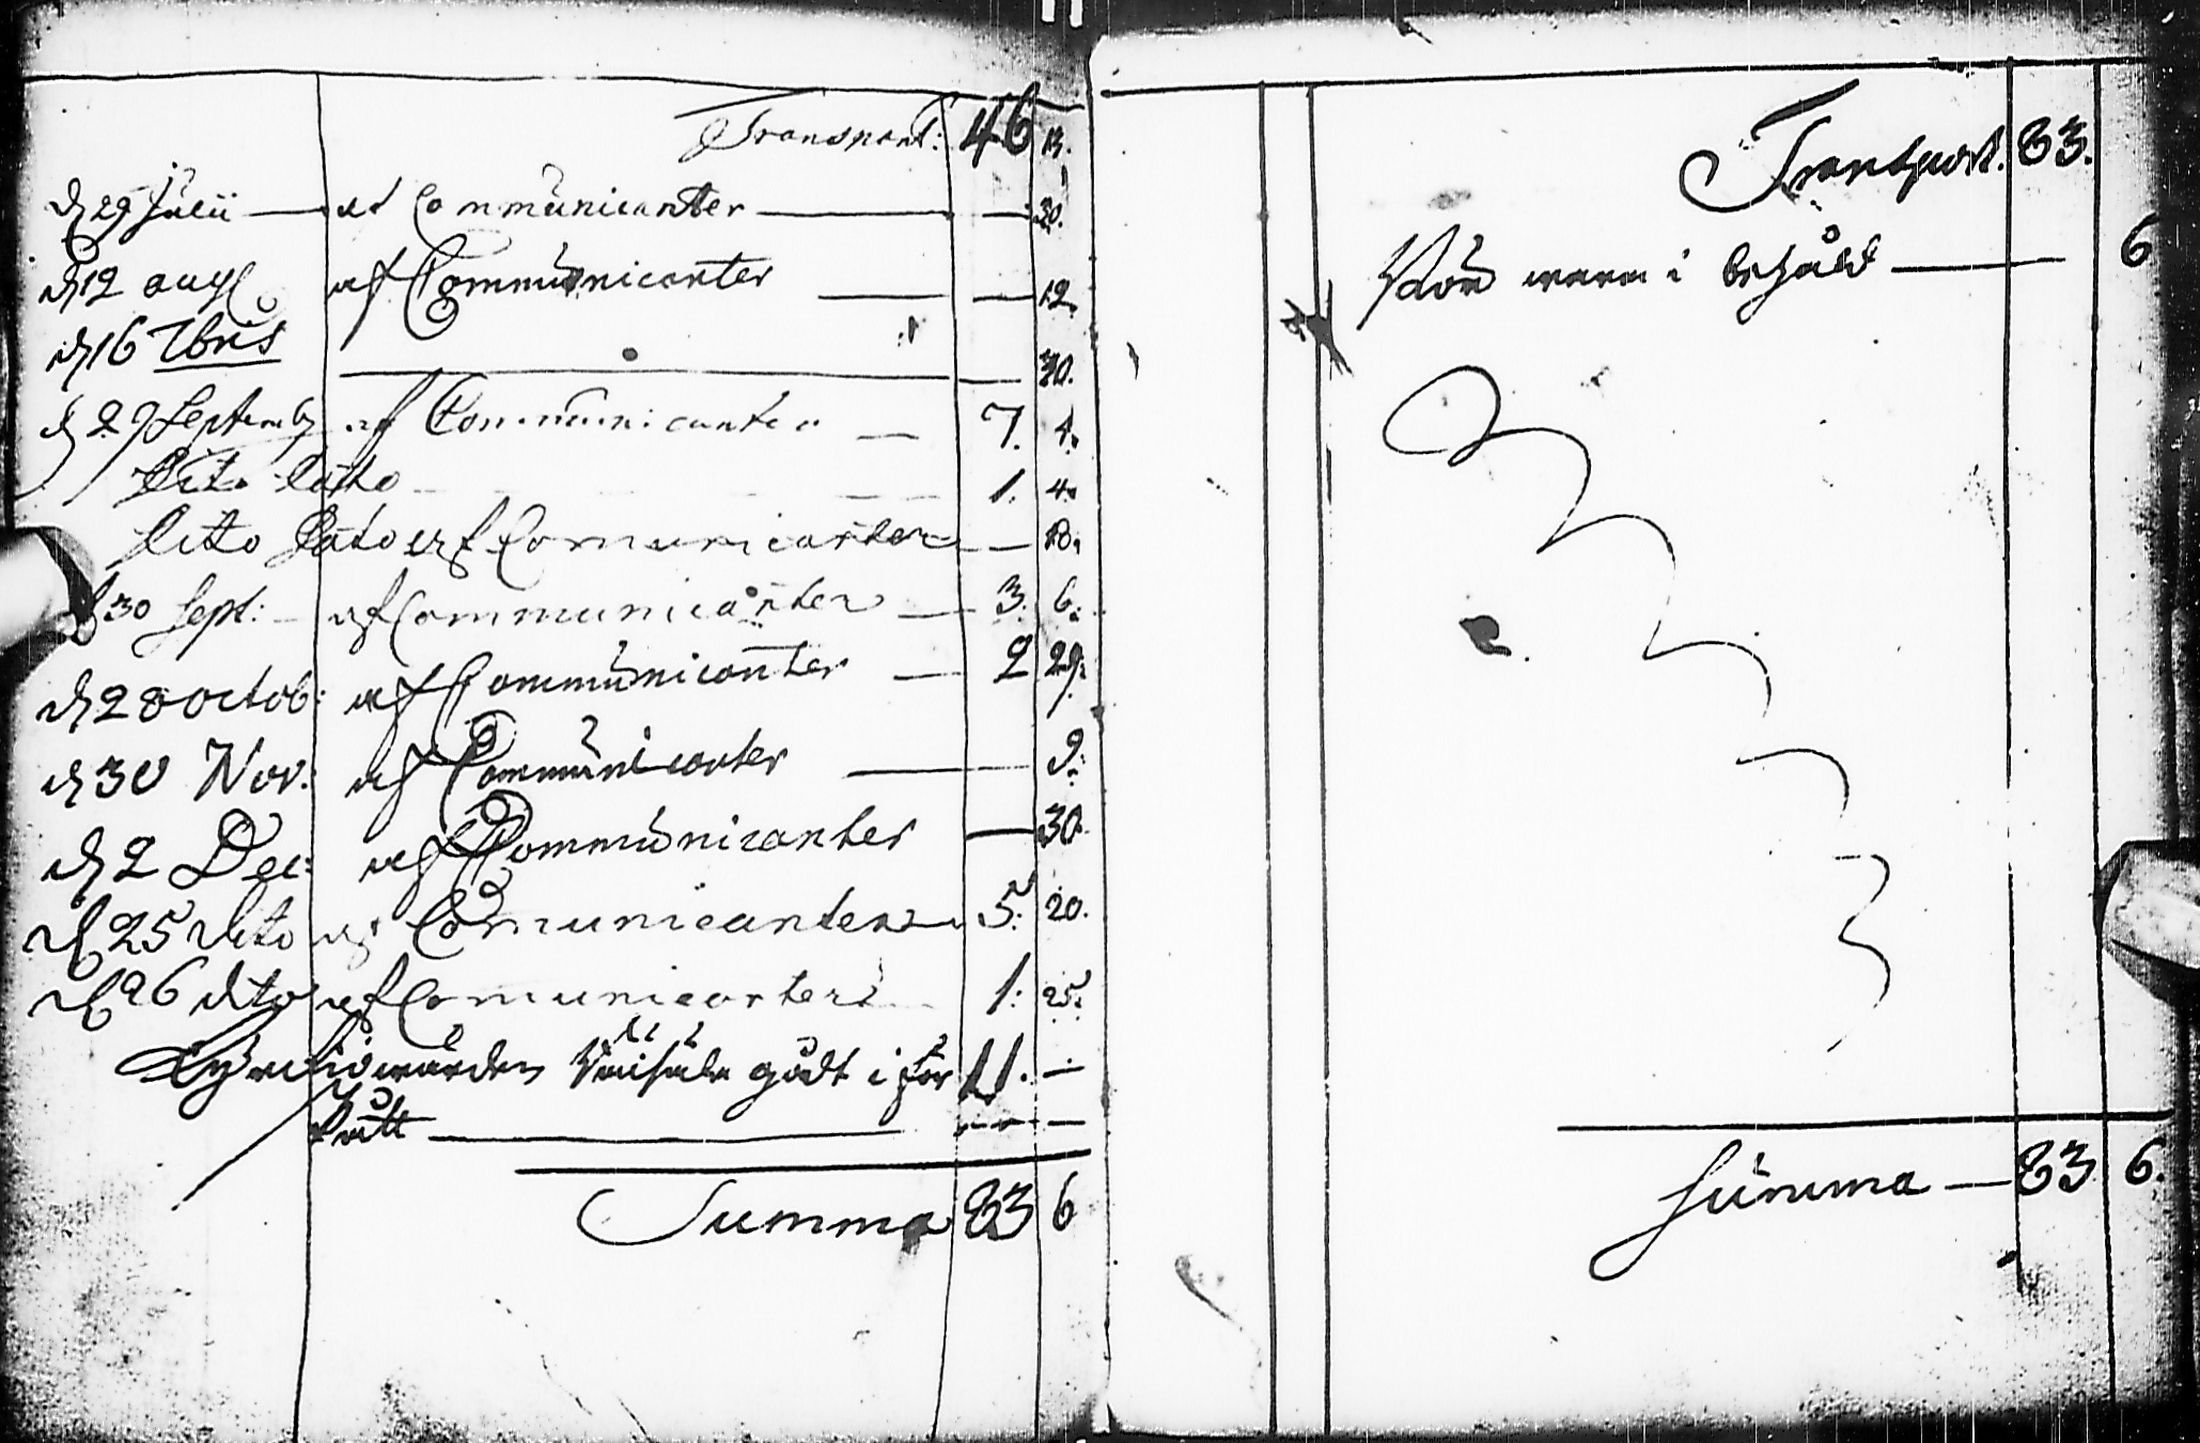 Transport: 46 13.
d 29 Julii af Communicanter 30.
d 12 aug af Communicanter 12.
d 16 7bris 30.
d 29 Septemb af Communicanter 7. 4.
Dito Dato 1. 4.
Dito Dato af Comunicanter 18.
d 30 Sept: af Communicanter 3. 6.
d 28 octob: af Communicanter 2 29.
d 30 Nov: af Communicanter 9.
d 2 Dec: af Communicanter 30.
d 25 dito af Comunicanter 5: 20.
d 26 dito af Comunicanter 1: 25.
godt i för 11. —
Summa 83 6
Transport. 83.
i behåld 6
Summa 83 6.